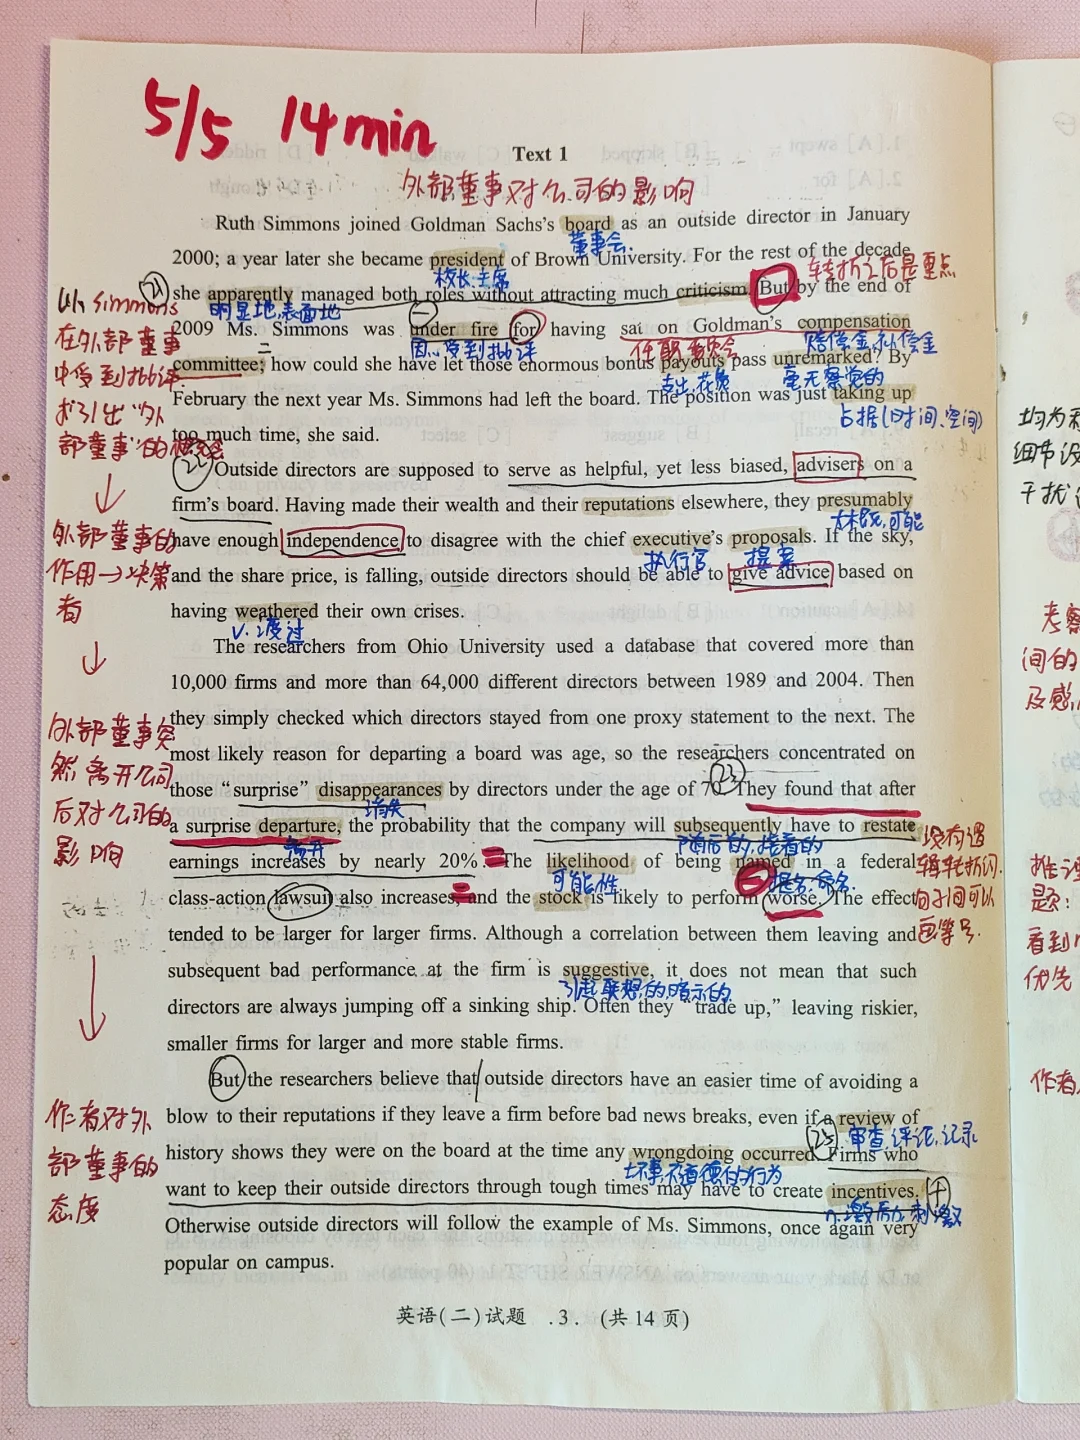 5/5 14min
Text 1
外部董事对公司的影响
Ruth Simmons joined Goldman Sachs's board as an outside director in January
董事会.
2000; a year later she became president of Brown University. For the rest of the decade
校长.主席
转折之后是重点
21
she apparently managed both roles without attracting much criticism. But by the end of
明显地,表面地
2009 Ms. Simmons was under fire for having sat on Goldman's compensation
因...受到批评
任职委员会
赔偿金,补偿金
committee; how could she have let those enormous bonus payouts pass unremarked? By
支出,花费
毫无察觉的
February the next year Ms. Simmons had left the board. The position was just taking up
占据(时间、空间)
too much time, she said.
以simmons
在外部董事
中受到批评
引出"外
部董事"的
22
Outside directors are supposed to serve as helpful, yet less biased, advisers on a
firm's board. Having made their wealth and their reputations elsewhere, they presumably
大概,可能
have enough independence to disagree with the chief executive's proposals. If the sky,
执行官
提案
and the share price, is falling, outside directors should be able to give advice based on
having weathered their own crises.
v.渡过
外部董事的
作用→决策
者
The researchers from Ohio University used a database that covered more than
10,000 firms and more than 64,000 different directors between 1989 and 2004. Then
they simply checked which directors stayed from one proxy statement to the next. The
most likely reason for departing a board was age, so the researchers concentrated on
23
those “surprise” disappearances by directors under the age of 70. They found that after
消失
a surprise departure, the probability that the company will subsequently have to restate
离开
随后的,接着的
earnings increases by nearly 20%. The likelihood of being named in a federal
可能性
提名.命名.
class-action lawsuit also increases, and the stock is likely to perform worse. The effect
没有逻
辑转折词.
句子间可以
画等号.
tended to be larger for larger firms. Although a correlation between them leaving and
subsequent bad performance at the firm is suggestive, it does not mean that such
引起联想的,暗示的
directors are always jumping off a sinking ship. Often they “trade up,” leaving riskier,
smaller firms for larger and more stable firms.
外部董事突
然离开公司
后对公司的
影响
But the researchers believe that outside directors have an easier time of avoiding a
blow to their reputations if they leave a firm before bad news breaks, even if a review of
审查,评论,记录
history shows they were on the board at the time any wrongdoing occurred. Firms who
坏事,不道德的行为
25
want to keep their outside directors through tough times may have to create incentives.
n.激励.刺激
Otherwise outside directors will follow the example of Ms. Simmons, once again very
popular on campus.
作者对外
部董事的
态度
英语(二)试题 .3. (共14页)
均为
细节
干扰
考察
间的
及感
题:
看到
优先
作者